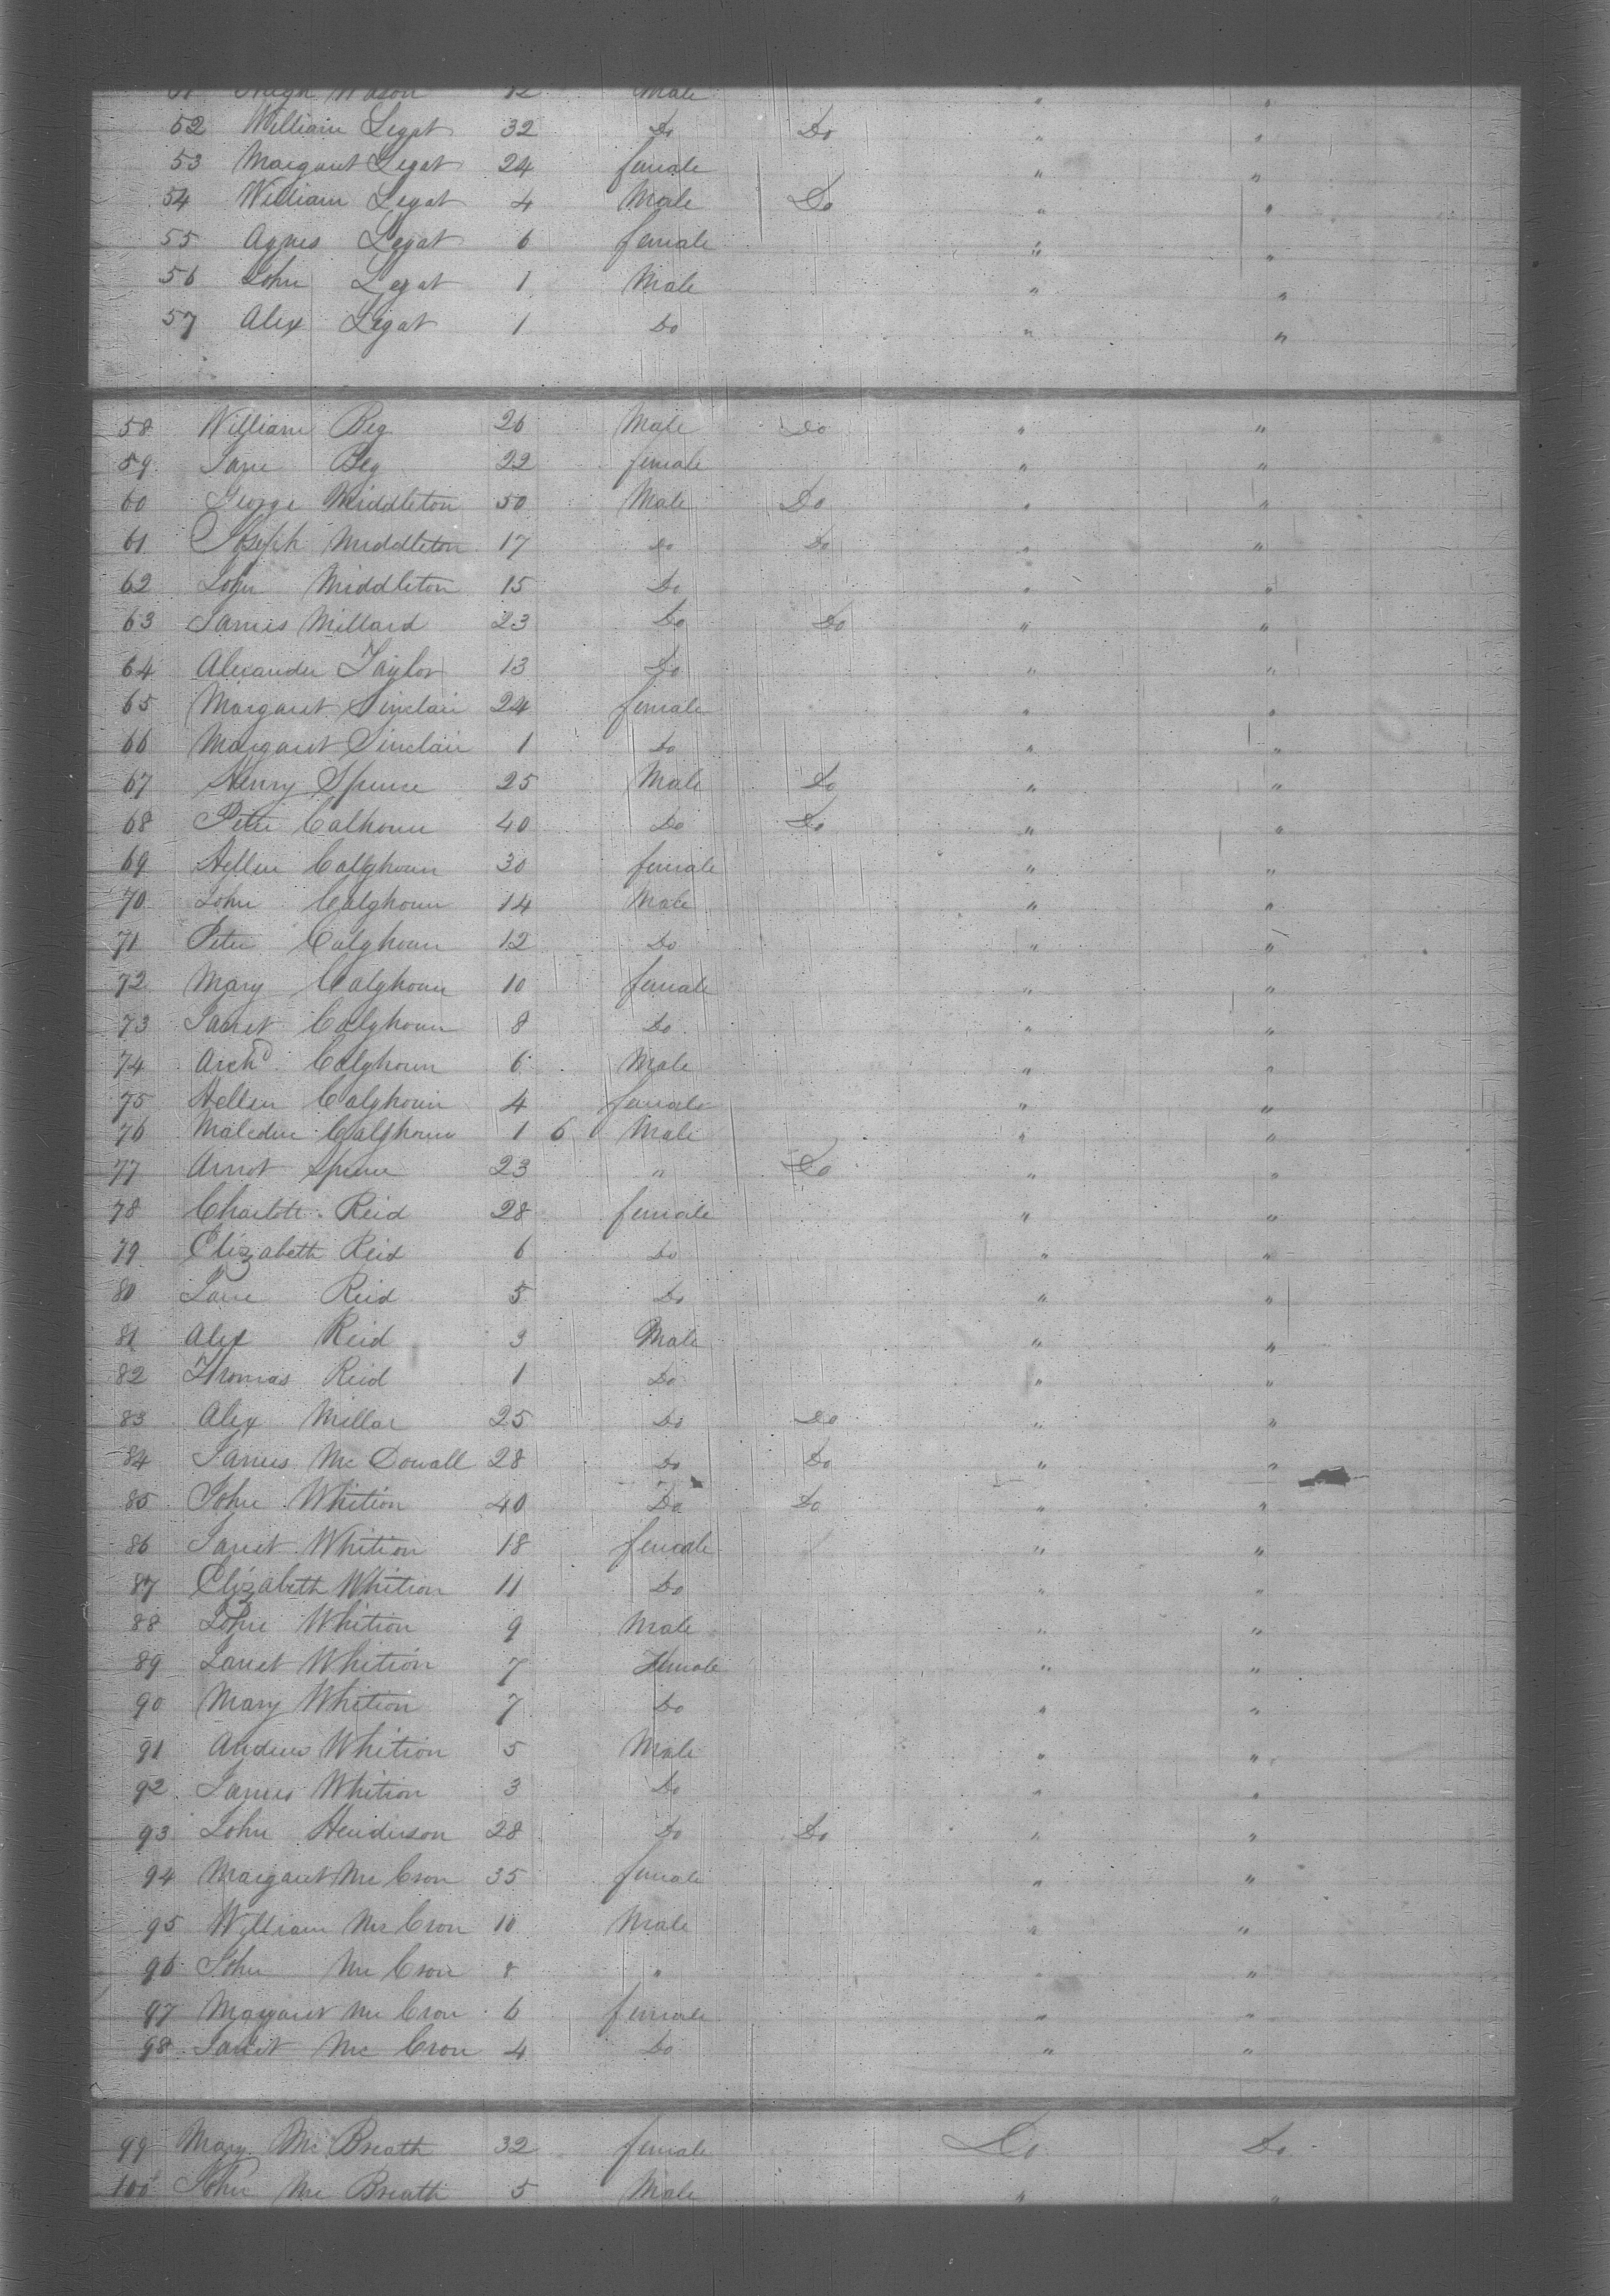 Male " "
52 William Legat 32 Do Do " "
53 Margaret Legat 24 female " "
54 William Legat 4 Male Do " "
55 Agnes Legat 6 female " "
56 John Legat 1 Male " "
57 Alex Legat 1 Do " "
58 William Beg 26 Male Do " "
59 Jane Beg 22 female " "
60 George Middleton 50 Male Do " "
61 Joseph Middleton 17 Do Do " "
62 John Middleton 15 Do " "
63 James Millard 23 Do Do " "
64 Alexander Taylor 13 Do " "
65 Margaret Sinclair 24 female " "
66 Margaret Sinclair 1 Do " "
67 Henry Spence 25 Male Do " "
68 Peter Calhoun 40 Do Do " "
69 Hellen Calghoun 30 female " "
70 John Calghoun 14 Male " "
71 Peter Calghoun 12 Do " "
72 Mary Calghoun 10 female " "
73 Janet Calghoun 8 Do " "
74 Archd Calghoun 6 Male " "
75 Hellen Calghoun 4 female " "
76 Malcolm Calghoun 1 6 Male " "
77 Arnot Spence 23 " Do " "
78 Charlotte Reid 28 female " "
79 Elizabeth Reid 6 Do " "
80 Jane Reid 5 Do " "
81 Alex Reid 3 Male " "
82 Thomas Reid 1 Do " "
83 Alex Millar 25 Do Do " "
84 James Mc Dowall 28 Do Do " "
85 John Whition 40 Do Do " "
86 Janet Whition 18 female " "
87 Elizabeth Whition 11 Do " "
88 John Whition 9 Male " "
89 Janet Whition 7 Female " "
90 Mary Whition 7 Do " "
91 Andrew Whition 5 Male " "
92 James Whition 3 Do " "
93 John Henderson 28 Do Do " "
94 Margaret Mc Cron 35 female " "
95 William Mc Cron 10 Male " "
96 John Mc Cron 8 " " "
97 Margaret Mc Cron 6 female " "
98 Janet Mc Cron 4 Do " "
99 Mary Mc Breath 32 female Do Do
100 John Mc Breath 5 Male " "